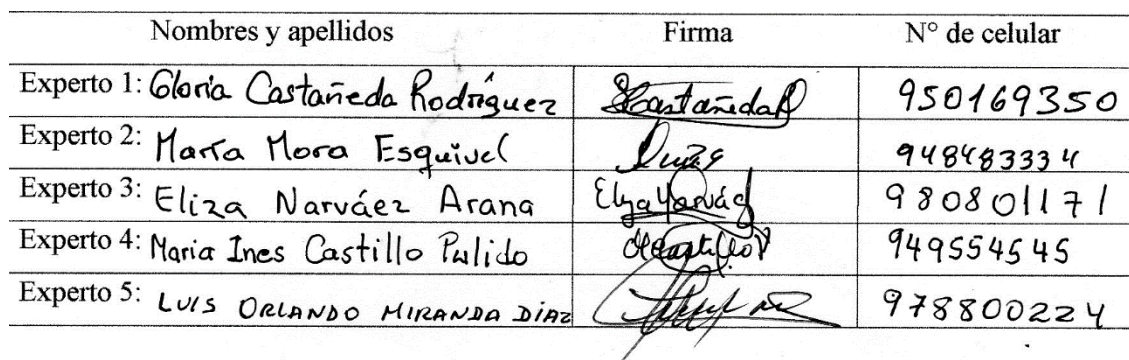 Nombres y apellidos Firma N° de celular
Experto 1: Gloria Castañeda Rodríguez SCastañedaR 950169350
Experto 2: María Mora Esquivel 948483334
Experto 3: Eliza Narváez Arana 980801171
Experto 4: Maria Ines Castillo Pulido MCastilloP 949554545
Experto 5: LUIS ORLANDO MIRANDA DÍAZ 978800224